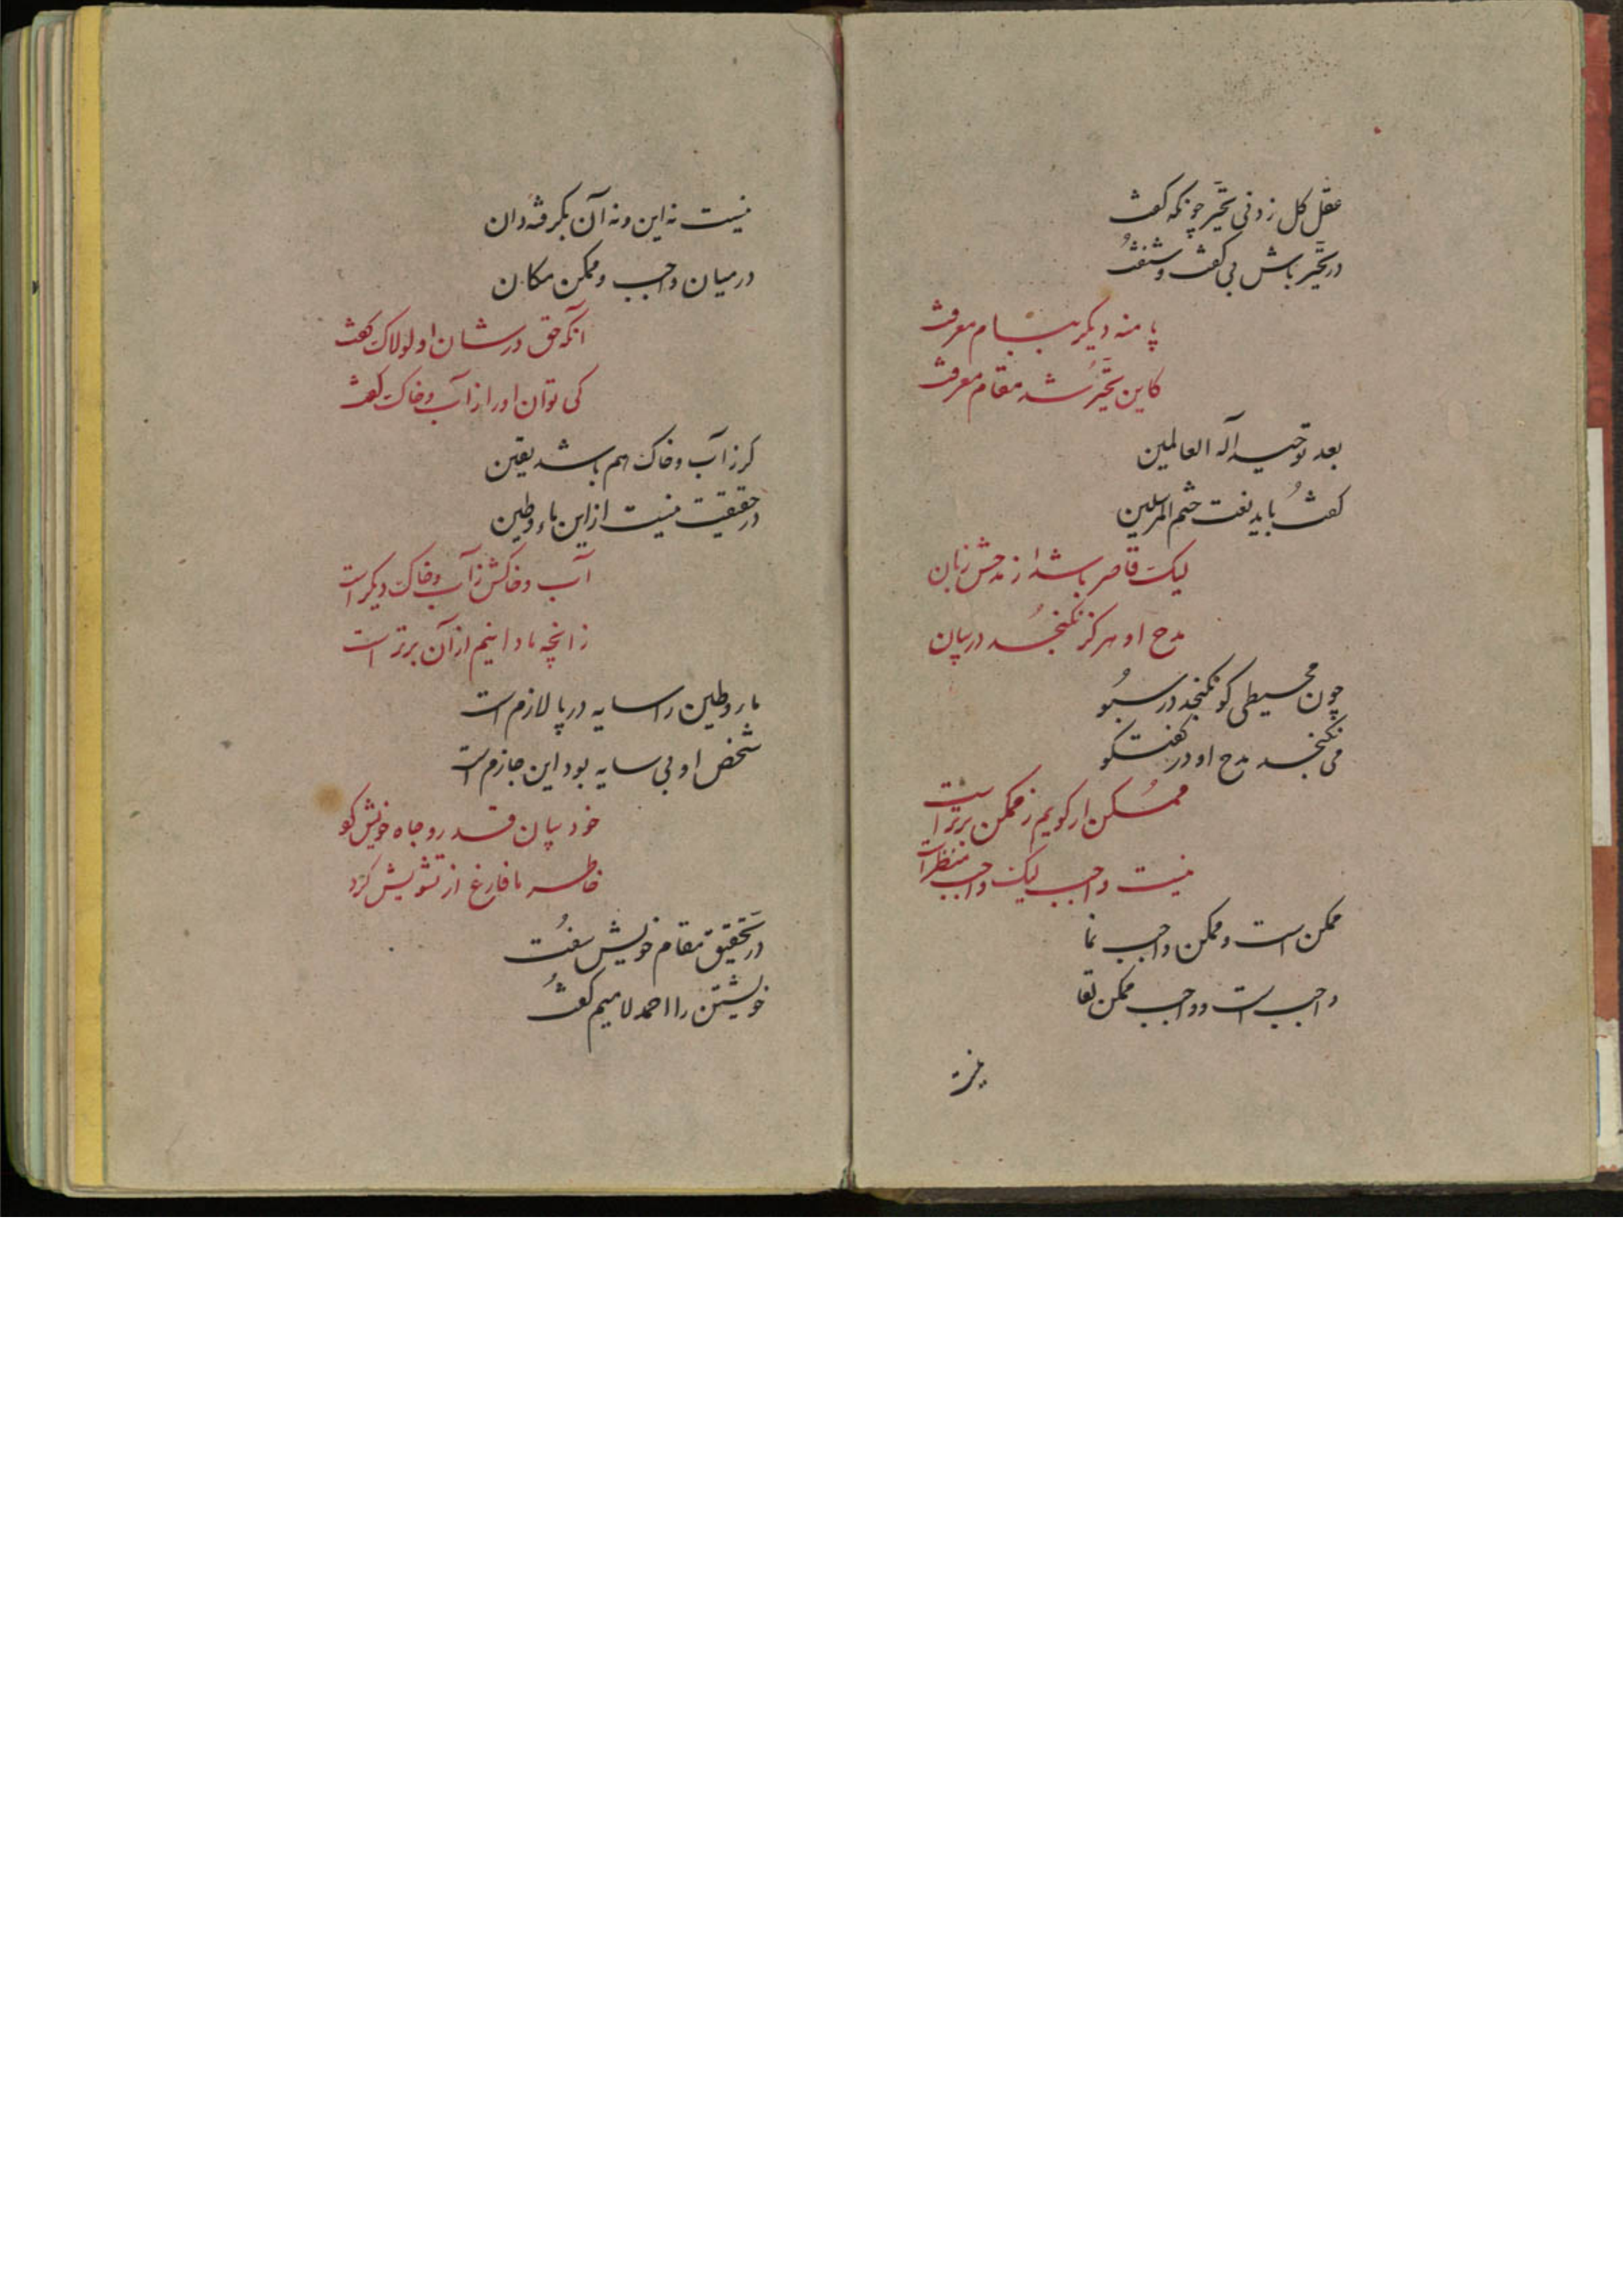 عقل کل زدنی تحیّر چونکه گفت
در تحیّر باش بی گفت و شنفت
پا منه دیکر ببام معرفت
کاین تحیّر شد مقام معرفت
بعد توحید اله العالمین
گفت باید نعت ختم المرسلین
لیک قاصر باشد از مدحش زبان
مدح او هرکز نکنجد در بیان
چون محیطی کو نکنجد در سبو
می نکنجد مدح او در گفتکو
ممکن ار کویم ز ممکن برتر است
نیست واجب لیک واجب منظر است
ممکن است و ممکن واجب نما
واجب است و واجب ممکن لقا
نیست نه این و نه آن بکرفته دان
در میان واجب و ممکن مکان
آنکه حق در شان او لولاک گفت
کی توان او را از آب و خاک گفت
کر ز آب و خاک هم باشد یقین
در حقیقت نیست از این ماء و طین
آب و خاکش ز آب و خاک دیکر است
زانچه ما دانیم از آن برتر است
ماء و طین را سایه در پا لازم است
شخص او بی سایه بود این جازم است
خود بیان قدر و جاه خویش کو
خاطر ما فارغ از تشویش کرد
در تحقیق مقام خویش سفت
خویشتن را احمد لا میم گفت